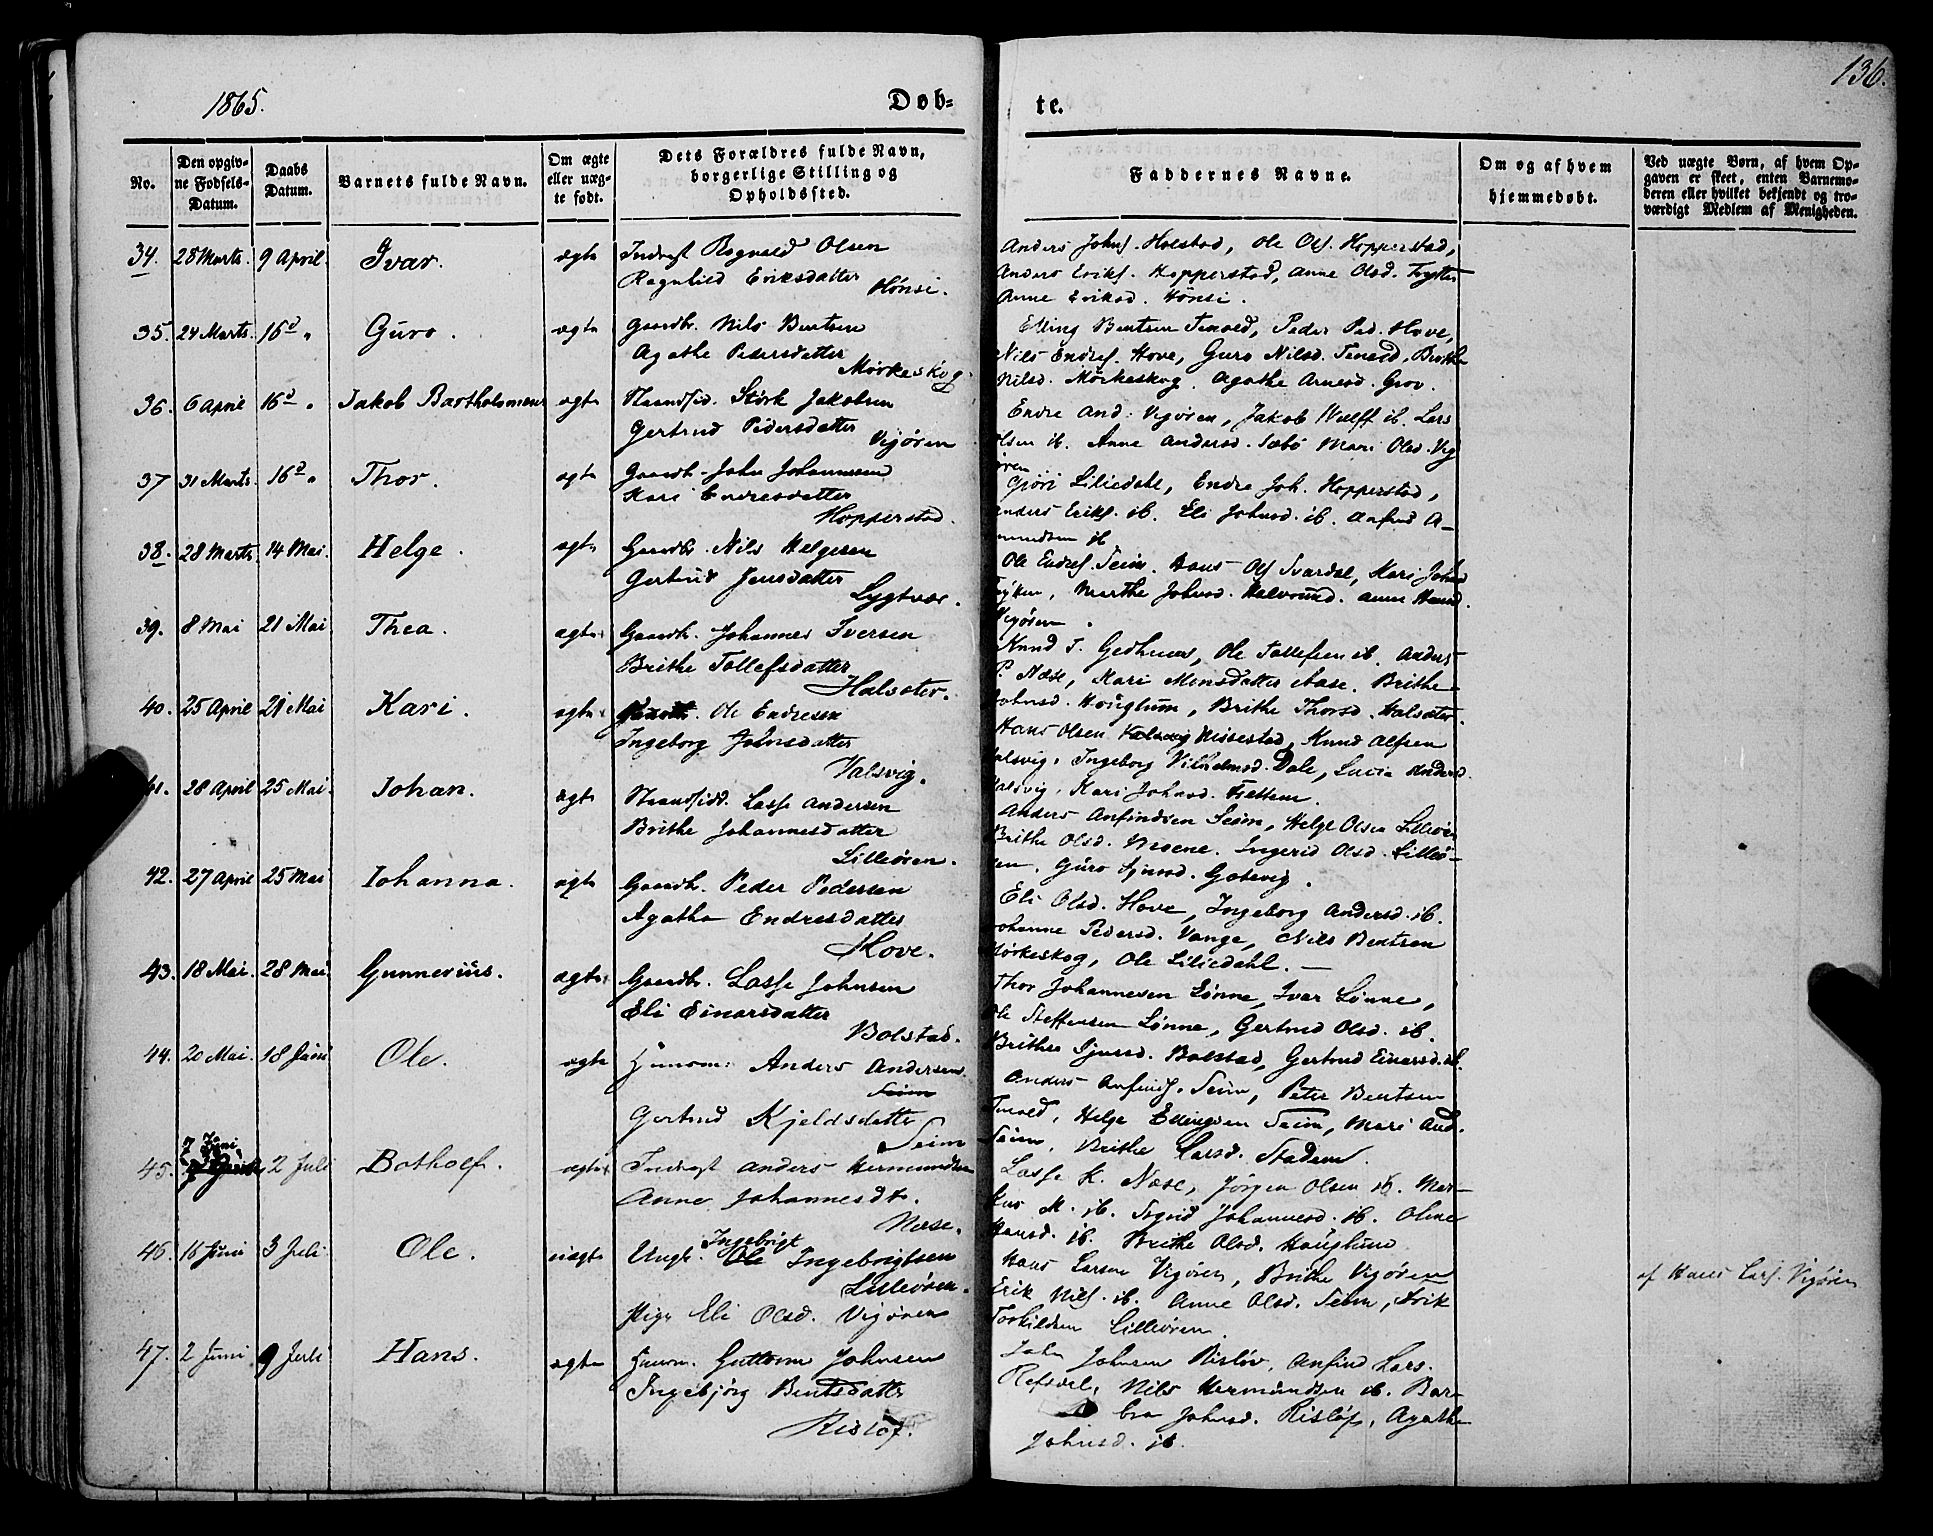 1865.
Døb-
te.
136.
No.
Den opgiv-
ne Fødsels-
Datum.
Daabs
Datum.
Barnets fulde Navn.
Om ægte
eller uæg-
te født.
Dets Forældres fulde Navn,
borgerlige Stilling og
Opholdssted.
Faddernes Navne.
Om og af hvem
hjemmedøbt.
Ved uægte Børn, af hvem Op-
gaven er skeet, enten Barnemo-
deren eller hvilket bekjendt og tro-
værdigt Medlem af Menigheden.
34. 28 Marts. 9 April. Ivar. ægte Indrst Rognald Olsen
Ragnhild Eriksdatter
Hønsi.
Anders Johs. Holstad, Ole Ols. Hopperstad,
Anders Eriks. Hopperstad, Anne Olsd.
Anne Eriksd. Hønsi.
35. 24 Marts. 16d " Guro. ægte Gaardbr. Nils Bentsen
Agathe Pedersdatter
Mørkeskog.
Elling Bentsen Tenold, Peder Ped. Hove,
Nils Endres. Hove, Guro Nilsd. Tenold, Brithe
Nilsd. Mörkeskog. Agathe Arnesd. Grov.
36. 6 April 16d " Jakob Bartholomeus ægte Strandsid. Størk Jakobsen
Gertrud Pedersdatter
Vigøren
Endre And. Vigøren, Jakob Wulff ib. Lars
Olsen ib. Anne Andersd. Sæbö Mari Olsd. Vig
øren
37 31 Marts. 16d " Thor. ægte Gaardb. John Johannesen
Kari Endresdatter
Hopperstad.
Gjöri Liliedahl, Endre Joh. Hopperstad,
Anders Eriks. ib. Eli Johnsd. ib. Anfind A-
mundsen ib
38. 28 Marts. 14 Mai. Helge. ægte Gaardbr. Nils Helgesen
Gertrud Jensdatter
Lygtvær.
Ole Endres. Seim. Hans Ols Svardal, Kari Johnsd
Marthe Johnsd. Halvrund. Anne Hansd.
Vigören.
39. 8 Mai 21 Mai Thea. ægte Gaardb. Johannes Iversen
Brithe Tollefsdatter
Halsæter.
Knud T. Tollefsen ib. Anders
P. Næse, Kari Monsdatter Aase. Brithe
Johnsd. Houglum, Brithe Thorsd. Halsæter.
40. 25 April 21 Mai Kari. ægte Gaardb. Ole Endresen
Ingeborg Johnsdatter
Valsvig.
Hans Olsen Nissestad, Knud Alfsen
Valsvig, Ingeborg Vilhelmsd. Dale, Lucie Andersd.
Valsvig, Kari Johnsd. Fjettem.
41. 28 April 25 Mai. Johan. ægte Strandsidd. Lasse Andersen
Brithe Johannesdatter
Lilleøren.
Anders Anfindsen Seim, Helge Olsen Lilleøren
Brithe Olsd. Ingerid Olsd. Lilleø-
ren. Guro Sjursd. Gotevig.
42. 27 April 25 Mai Johanna. ægte Gaardb. Peder Pedersen
Agatha Endresdatter
Hove.
Eli Olsd. Hove, Ingeborg Andersd. ib.
Johanne Pedersd. Vange, Nils Bentsen
Mørkeskog, Ole Liliedahl.
43. 18 Mai. 28 Mai Gunnerius. ægte Gaardbr. Lasse Johnsen
Eli Einarsdatter
Bolstad.
Thor Johannesen Lönne, Ivar Lönne,
Ole Steffensen Lönne, Gertrud Olsd. ib.
Brithe Sjursd. Bolstad, Gertrud Einarsd. ib.
44. 20 Mai. 18 Juni Ole. ægte Huusm. Anders Andersen
Seim
Gertrud Kjeldsdatter
Seim
Anders Anfinds. Seim, Peter Bentsen
Tenold, Helge Ellingsen Seim, Mari And.
Seim, Brithe Larsd. Stadem.
45. 7 Juni 2 Juli Botholf. ægte Indrest Anders Hermundsen
Anne Johannesdt.
Næse.
Lasse K. Næse, Jörgen Olsen ib. Mar-
kus M. ib. Sigrid Johannesd. ib. Oline
Hansd. ib. Brithe Olsd. Houglum
46. 16 Juni 3 Juli Ole. uægte Ungk. Ole Ingebrigt Ingebrigtsen
Lilleøren.
Pige Eli Olsd. Vigøren
Hans Larsen Vigøren, Brithe Vigøren
Erik Nils. ib. Anne Olsd. Seim, Erik
Torkildsen Lilleøren.
af Hans Lars. Vigøren
47. 2 Juni 9 Juli Hans. ægte Huusm. Guttorm Johnsen
Ingebjörg Bentsdatter
Risløf.
John Johnsen Risløv, Anfind Lars.
Refsdal, Nils Hermundsen ib. Bar-
bra Johnsd. Risløf, Agathe
Johnsd. ib.